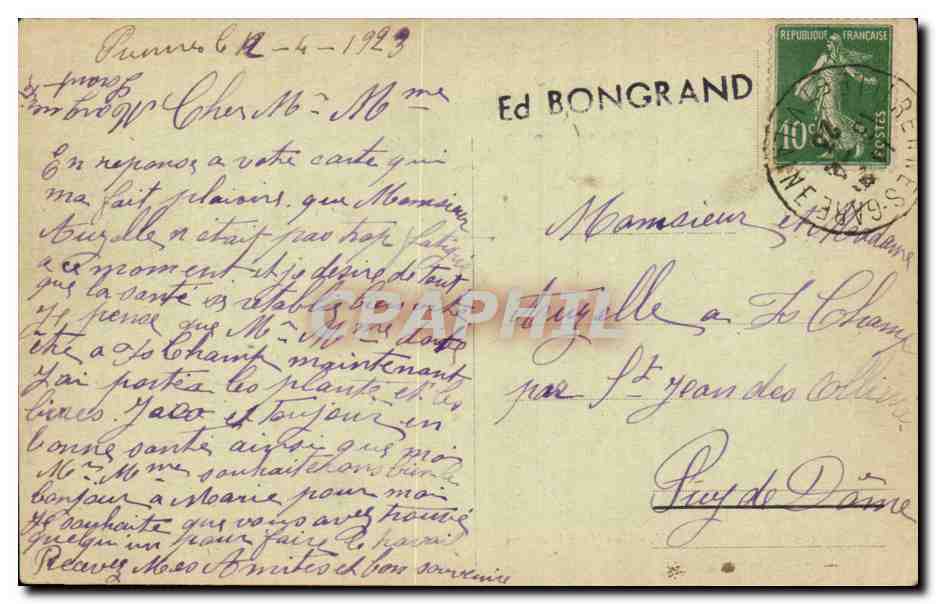 le 12-4-1923
Cher Mr Mme
En reponse a votre carte qui
ma fait plaisire que Monsieur
Auzelle n était pas trop fatigué
a ce moment et je desire de tout
que la santé retablé
Je pense que Mr Mme doive
etre a Is Champ maintenant
J'ai portéa les plants et les
livres Jaco et toujour en
bonne santé ainsi que moi
Mr Mme souhaiterons bien le
bonjour a Marie pour moi
Je souhaite que vous aves trouvé
quelqu'un pour faire le travail
Recevez Mes Amities et bon souvenire
CPAPHIL
Ed BONGRAND
REPUBLIQUE FRANÇAISE
10c
POSTES
Monsieur et Madame
Auzelle a Is Champ
par St Jean des Ollieres
Puy de Dôme